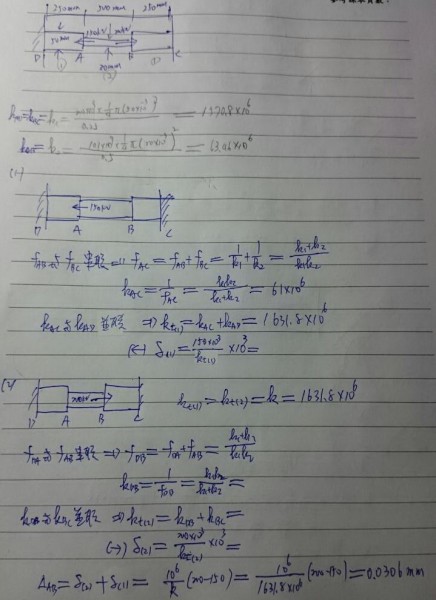 250mm 300mm 250mm
D A B C
(1) (2) (1)
20mm
= 1570.8×10⁶
= 63.06×10⁶
(1)
150kN
D A B C
f_AB与f_BC串联 ∴ f_AC = f_AB + f_BC = 1/k₁ + 1/k₂ = (k₁+k₂)/(k₁k₂)
k_AC = 1/f_AC = k₁k₂/(k₁+k₂) = 61×10⁶
k_AC与k_AD並联 ⇒ k_t(1) = k_AC + k_AD = 1631.8×10⁶
(←) δ_(1) = (150×10³)/k_t(1) ×10³ =
(2)
D A B C
k_t(1) = k_t(2) = k = 1631.8×10⁶
f_DA与f_AB串联 ⇒ f_DB = f_DA + f_AB = (k₁+k₂)/(k₁k₂)
k_DB = 1/f_DB = k₁k₂/(k₁+k₂) =
k_DB与k_BC並联 ⇒ k_t(2) = k_DB + k_BC =
(→) δ_(2) = (200×10³)/k_t(2) ×10³ =
Δ_AB = δ_(2) + δ_(1) = 10⁶/k (200-150) = 10⁶/(1631.8×10⁶) (200-150) = 0.0306 mm